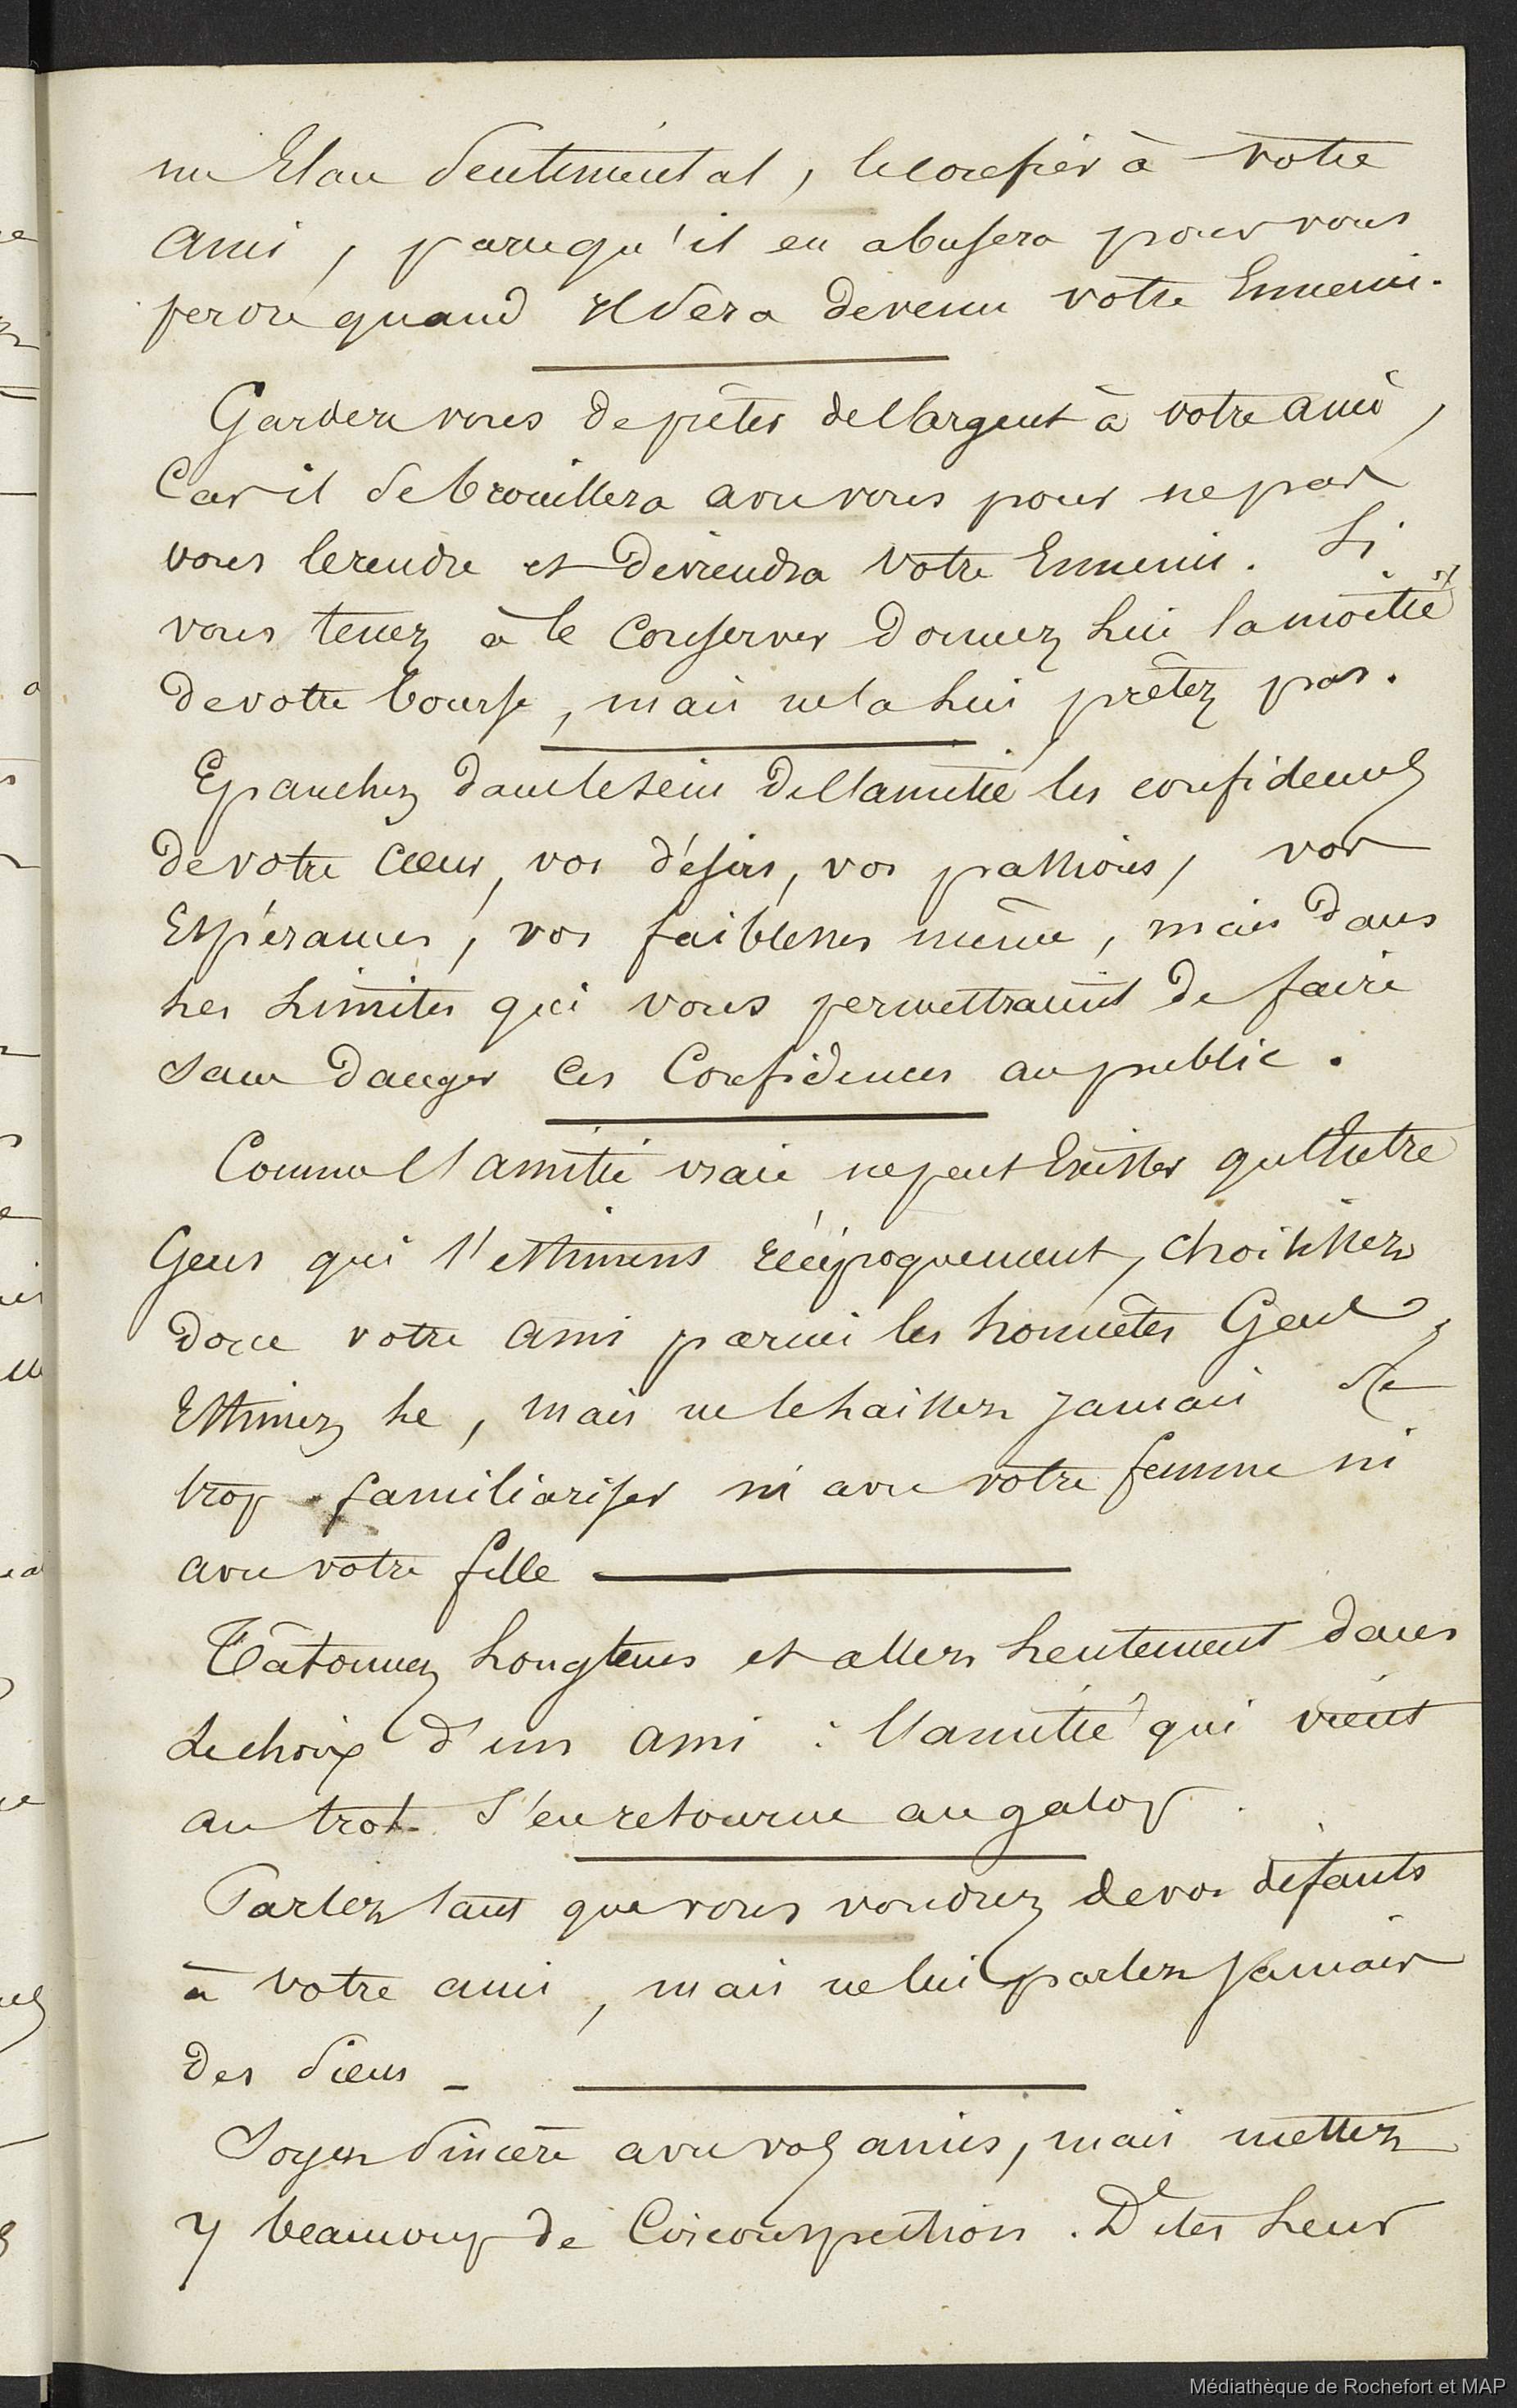 un Elan Sentimental, le confier à votre
Ami, parcequ'il en abusera pour vous
perdre quand il sera devenu votre Ennemi.
Gardez vous de prêter de l'argent à votre ami,
Car il se brouillera avec vous pour ne pas
vous le rendre et deviendra votre Ennemi. Si
vous tenez à le Conserver donnez lui la moitié
de votre bourse, mais ne la lui prêtez pas.
Epanchez dans le sein de l'amitié les confidences
de votre Cœur, vos désirs, vos passions, vos
Espérances, vos faiblesses même, mais dans
les Limites qui vous permettraient de faire
sans danger ces Confidences au public.
Comme l'amitié vraie ne peut Exister qu'Entre
Gens qui s'estiment réciproquement, choisissez
donc votre ami parmi les honnêtes Gens,
Estimez le, mais ne le laissez jamais se
trop familiariser ni avec votre femme ni
avec votre fille
Tâtonnez Longtems et allez Lentement dans
Le choix d'un ami : l'amitié qui vient
au trot s'en retourne au galop.
Parlez tant que vous voudrez de vos défauts
à votre ami, mais ne lui parlez Jamais
des siens -
Soyez sincère avec vos amis, mais mettez
y beaucoup de Circonspection. Dites Leur
Médiathèque de Rochefort et MAP